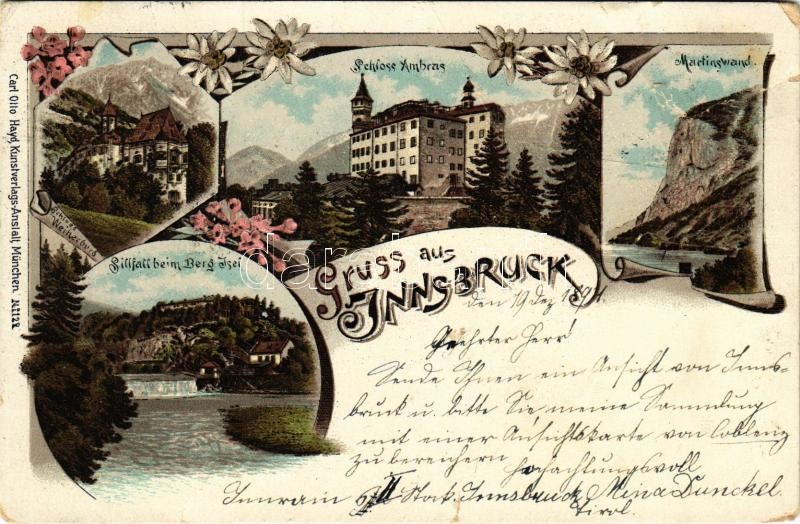 Schloss Ambras
Martinswand.
Schloss
Weiherburg
Sillfall beim Berg Isel
Gruss aus
INNSBRUCK
den 19 Dez.
Geehrter Herr!
Sende Ihnen ein Ansicht von Inns-
bruck u. bitte Sie meine Sammlung
mit einer Ansichtskarte von Coblenz
zu bereichern
Hochachtungsvoll
Innrain II Stock. Innsbruck Mina Dunckel.
Tirol.
Carl Otto Hayd, Kunstverlags-Anstalt, München.
darabanth